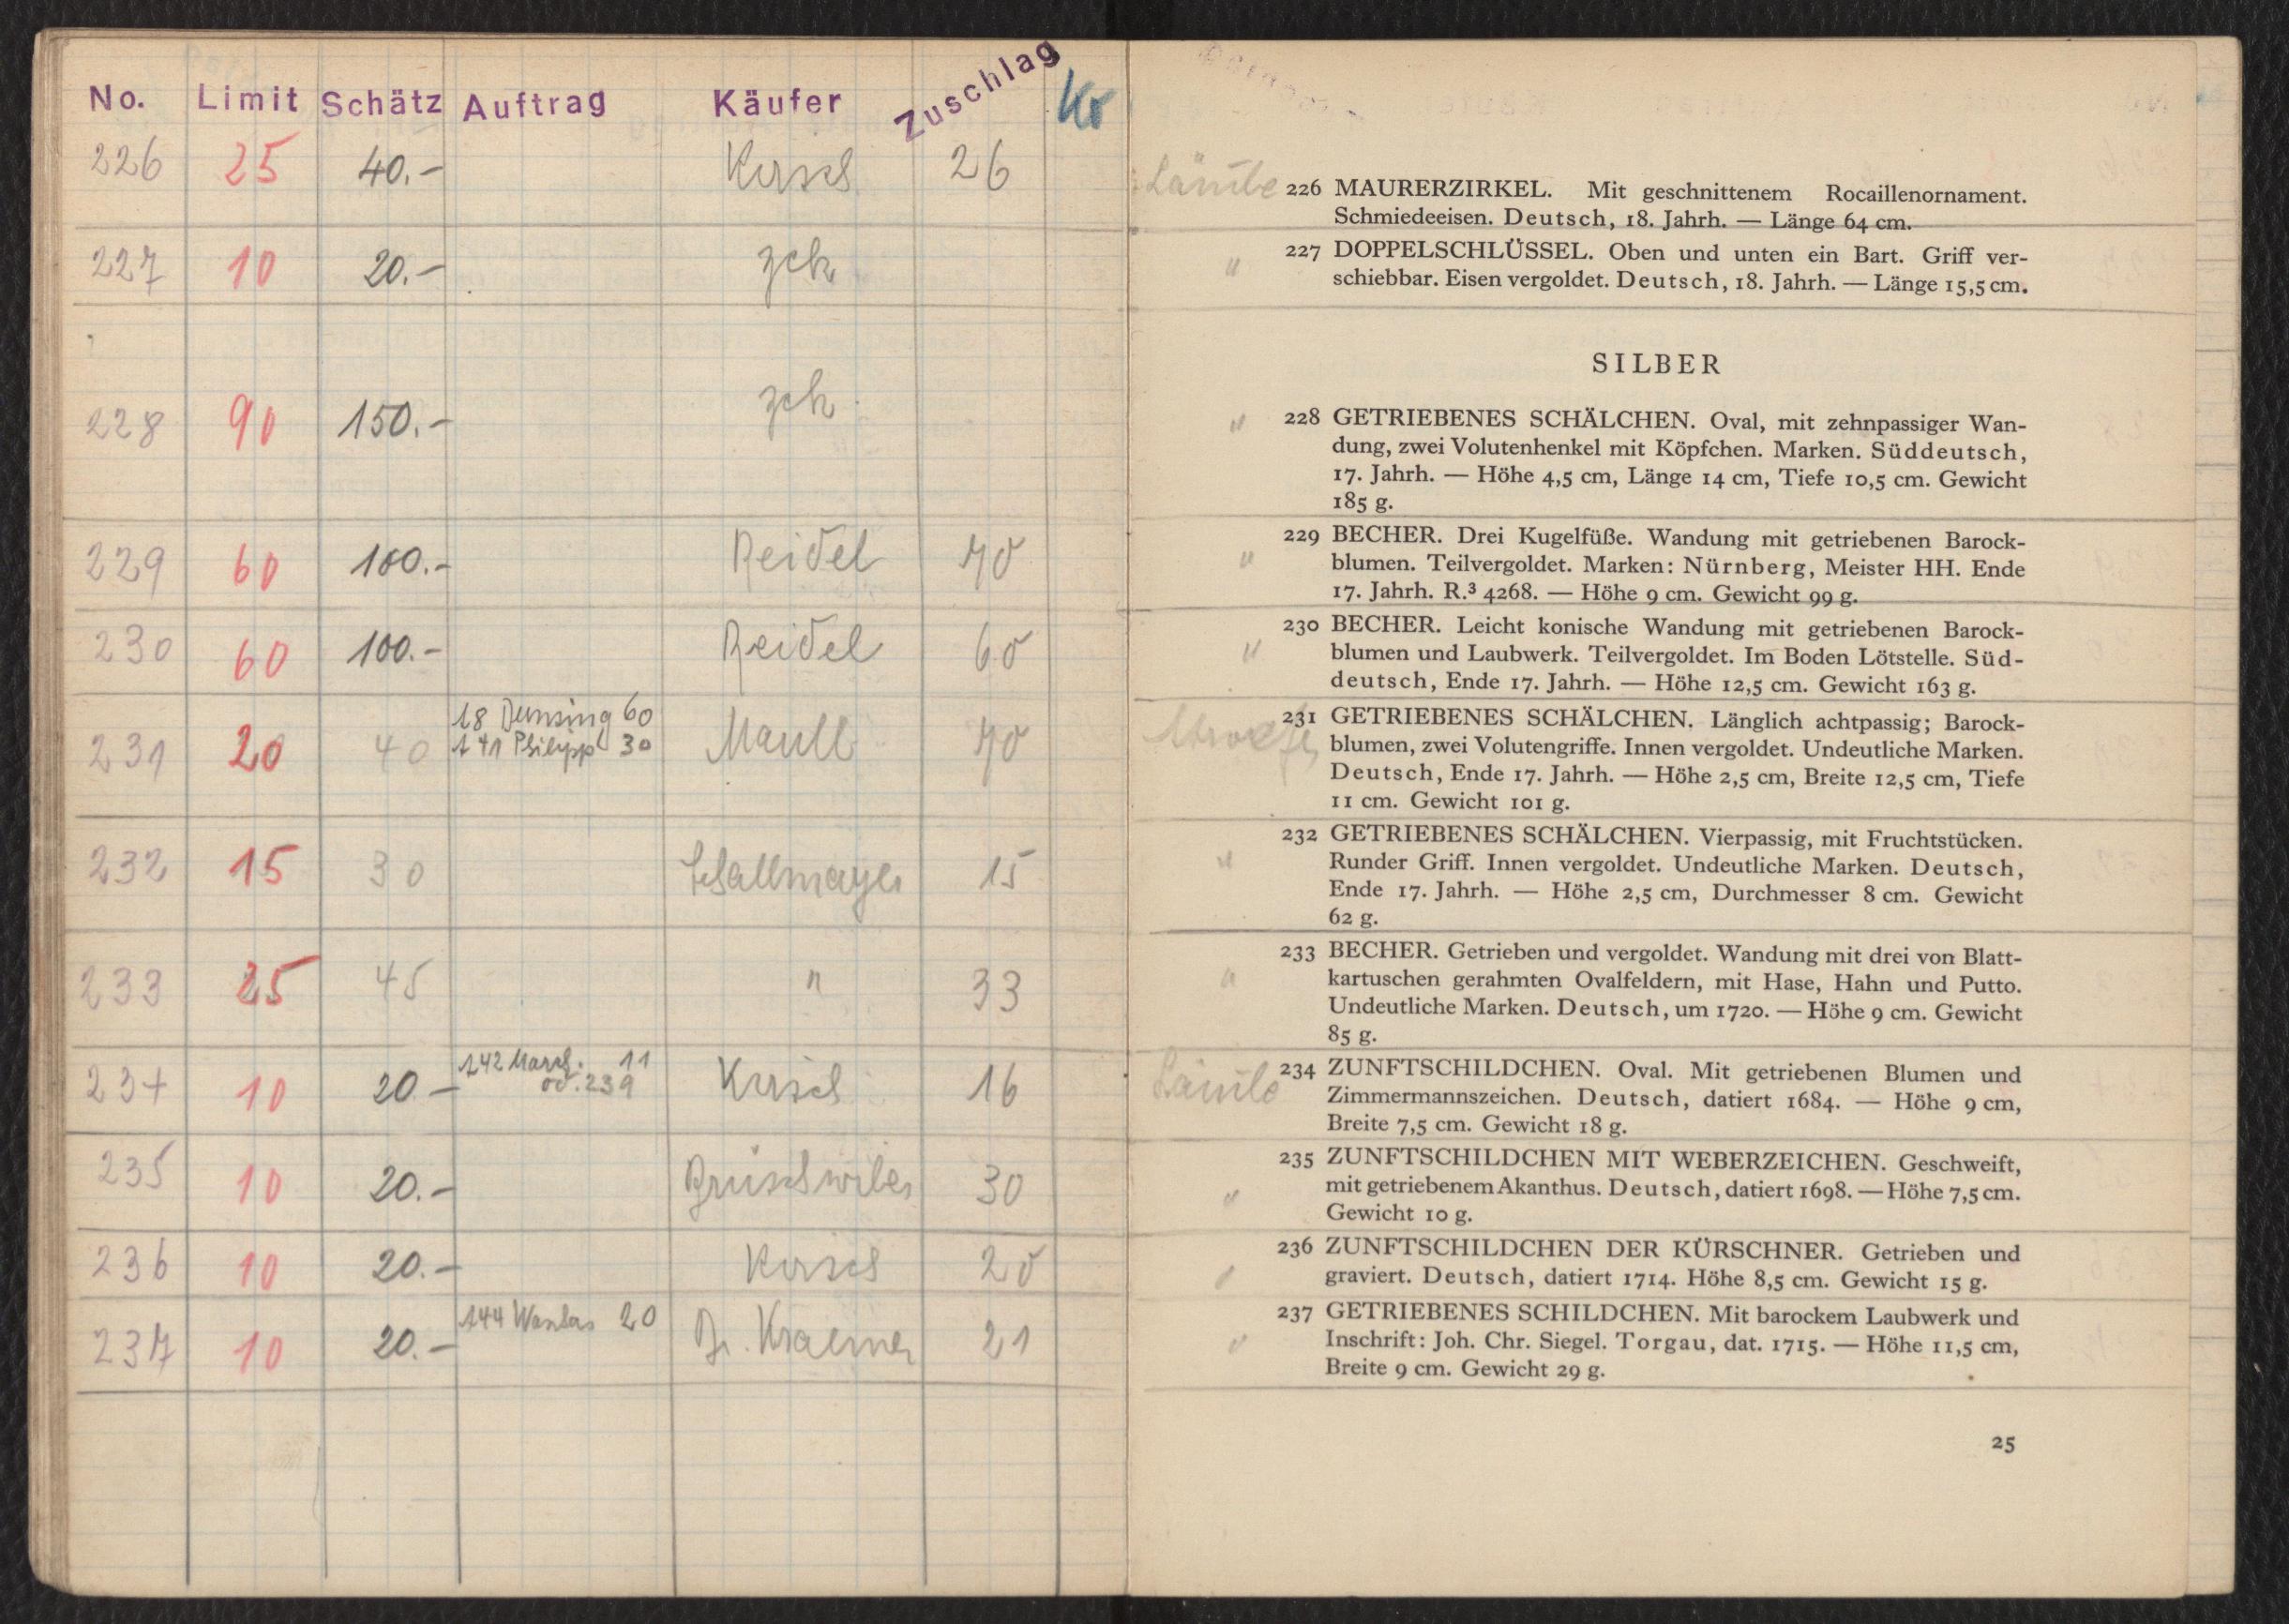 No. Limit Schätz Auftrag Käufer Zuschlag
226 25 40.- Kirsch 26
227 10 20.- zck
228 90 150.- zck
229 60 100.- Reidel 70
230 60 100.- Reidel 60
18 Densing 60
231 20 40 141 Philipp 30 Maull 70
232 15 30 Schallmayer 15
233 25 45 " 33
142 11
234 10 20 - od. 239 Kirsch 16
235 10 20.- Brüschwiler 30
236 10 20.- Kirsch 20
144 20
237 10 20.- Dr. Kraemer 21
Lämle 226 MAURERZIRKEL. Mit geschnittenem Rocaillenornament.
Schmiedeeisen. Deutsch, 18. Jahrh. — Länge 64 cm.
" 227 DOPPELSCHLÜSSEL. Oben und unten ein Bart. Griff ver-
schiebbar. Eisen vergoldet. Deutsch, 18. Jahrh. — Länge 15,5 cm.
SILBER
" 228 GETRIEBENES SCHÄLCHEN. Oval, mit zehnpassiger Wan-
dung, zwei Volutenhenkel mit Köpfchen. Marken. Süddeutsch,
17. Jahrh. — Höhe 4,5 cm, Länge 14 cm, Tiefe 10,5 cm. Gewicht
185 g.
229 BECHER. Drei Kugelfüße. Wandung mit getriebenen Barock-
" blumen. Teilvergoldet. Marken: Nürnberg, Meister HH. Ende
17. Jahrh. R.³ 4268. — Höhe 9 cm. Gewicht 99 g.
230 BECHER. Leicht konische Wandung mit getriebenen Barock-
" blumen und Laubwerk. Teilvergoldet. Im Boden Lötstelle. Süd-
deutsch, Ende 17. Jahrh. — Höhe 12,5 cm. Gewicht 163 g.
231 GETRIEBENES SCHÄLCHEN. Länglich achtpassig; Barock-
blumen, zwei Volutengriffe. Innen vergoldet. Undeutliche Marken.
Deutsch, Ende 17. Jahrh. — Höhe 2,5 cm, Breite 12,5 cm, Tiefe
11 cm. Gewicht 101 g.
232 GETRIEBENES SCHÄLCHEN. Vierpassig, mit Fruchtstücken.
" Runder Griff. Innen vergoldet. Undeutliche Marken. Deutsch,
Ende 17. Jahrh. — Höhe 2,5 cm, Durchmesser 8 cm. Gewicht
62 g.
233 BECHER. Getrieben und vergoldet. Wandung mit drei von Blatt-
" kartuschen gerahmten Ovalfeldern, mit Hase, Hahn und Putto.
Undeutliche Marken. Deutsch, um 1720. — Höhe 9 cm. Gewicht
85 g.
Lämle 234 ZUNFTSCHILDCHEN. Oval. Mit getriebenen Blumen und
Zimmermannszeichen. Deutsch, datiert 1684. — Höhe 9 cm,
Breite 7,5 cm. Gewicht 18 g.
235 ZUNFTSCHILDCHEN MIT WEBERZEICHEN. Geschweift,
" mit getriebenem Akanthus. Deutsch, datiert 1698. — Höhe 7,5 cm.
Gewicht 10 g.
236 ZUNFTSCHILDCHEN DER KÜRSCHNER. Getrieben und
" graviert. Deutsch, datiert 1714. Höhe 8,5 cm. Gewicht 15 g.
237 GETRIEBENES SCHILDCHEN. Mit barockem Laubwerk und
" Inschrift: Joh. Chr. Siegel. Torgau, dat. 1715. — Höhe 11,5 cm,
Breite 9 cm. Gewicht 29 g.
25